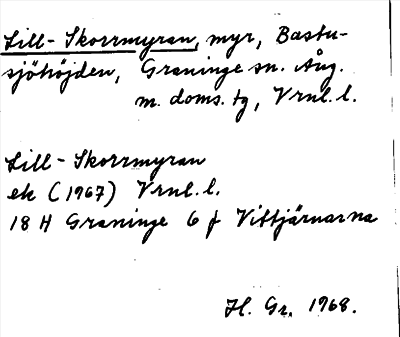 Lill-Skorrmyran, myr, Bastu-
sjöhöjden, Graninge sn. Ång.
m. doms. tg, Vrnl. l.
Lill-Skorrmyran
ek (1967) Vrnl. l.
18 H Graninge 6 f Vittjärnarna
H. Gr. 1968.